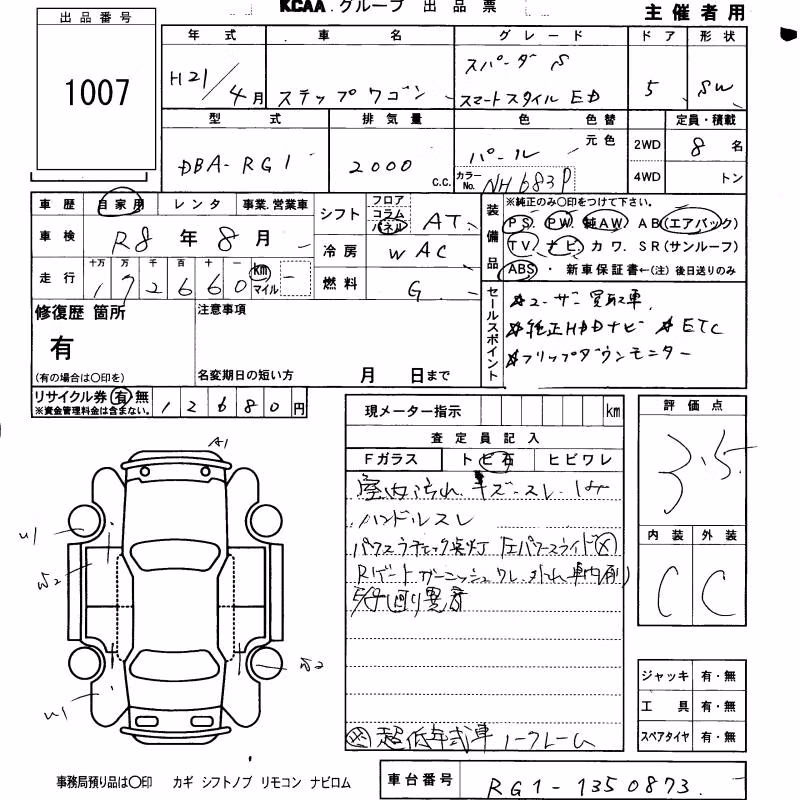 KCAA.グループ 出品票
主催者用
出品番号
1007
年式 車名 グレード ドア 形状
H21/4月 ステップワゴン スパーダ S
スマートスタイル ED
5 SW
型式 排気量 色 色替 定員・積載
DBA-RG1 2000 c.c. パール 元色
カラーNo. NH683P
2WD 8名
4WD トン
車歴 自家用 レンタ 事業.営業車
車検 R8年8月
走行 十万 万 千 百 十 一
172660 km マイル
シフト フロア コラム パネル AT
冷房 WAC
燃料 G
装備品
※純正のみ○印をつけて下さい。
PS. PW. 純AW. AB(エアバック)
TV ナビ カワ. SR(サンルーフ)
ABS・新車保証書←(注)後日送りのみ
修復歴 箇所
有
(有の場合は○印を)
注意事項
名変期日の短い方 月 日まで
セールスポイント
☆ユーザー買取車
☆純正HDDナビ ☆ETC
☆フリップダウンモニター
リサイクル券 有 無 12680円
※資金管理料金は含まない。
現メーター指示 km
査定員記入
Fガラス トビ石 ヒビワレ
室内汚れ.キズ・スレ・
ハンドルスレ
パワスラチェック点灯 左パワースライド×
Rゲートガーニッシュワレ.
異音
超低年式車 ノークレーム
評価点
3.5
内装 外装
C C
ジャッキ 有・無
工具 有・無
スペアタイヤ 有・無
A1
U1
U1
事務局預り品は○印 カギ シフトノブ リモコン ナビロム
車台番号 RG1-1350873.